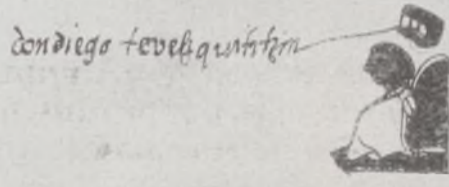 don diego tevetzquititzin